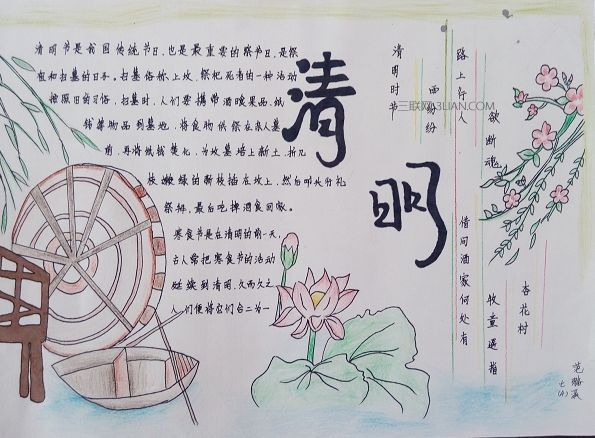 清明节是我国传统节日,也是最重要的祭节日,是祭
祖和扫墓的日子。扫墓俗称上坟,祭祀死者的一种活动
按照旧的习俗,扫墓时,人们要携带酒食果品,纸
钱等物品到墓地,将食物供祭在亲人墓
前,再将纸钱焚化,为坟墓培上新土,折几
枝嫩绿的新枝插在坟上,然后叩头行礼
祭拜,最后吃掉酒食回家。
寒食节是在清明的前一天,
古人常把寒食节的活动
延续到清明,久而久之
人们便将它们合二为一
清明
清明时节
雨纷纷
路上行人
欲断魂
借问酒家何处有
牧童遥指
杏花村
三联网 3LIAN.COM